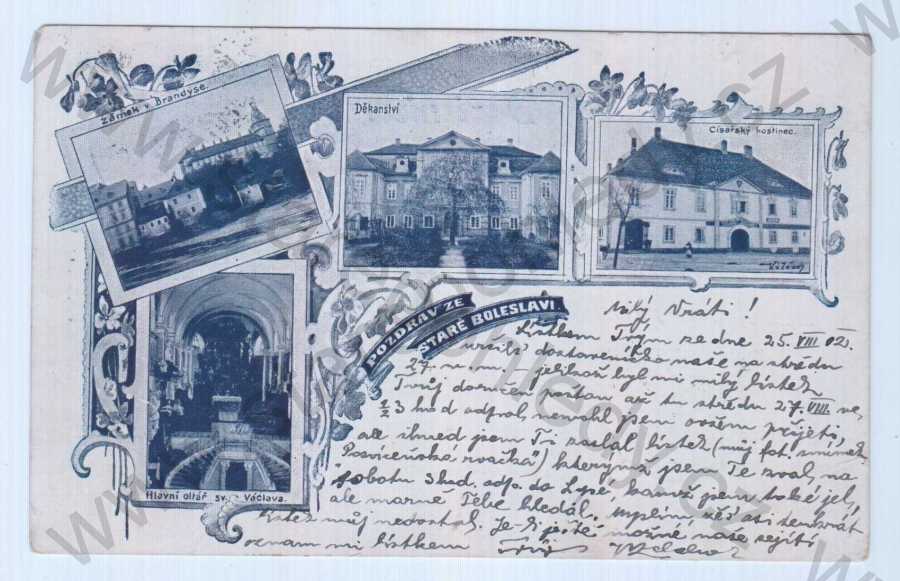 Zámek v Brandýse.
Děkanství
Císařský hostinec.
POZDRAV ZE
STARÉ BOLESLAVI
Hlavní oltář sv. Václava.
milý !
Lístkem Tvým ze dne 25. VIII 02.
dostaveníčko naše na středu
27. m. – jelikož byl mi milý lístek
Tvůj doručen až tu středu 27. VIII. ve
½3 hod odpol, nemohl jsem ovšem přijeti,
ale ihned jsem Ti zaslal lístek (můj fot. snímek
") kterýmž jsem Te zval, na
sobotu 3 hod. odp. do Lysé, kamž jsem také jel,
ale marně Tebe hledal. Myslím, že asi tenkrát
lístek můj nedostal. Je-li ještě možné naše sejití
oznam mi lístkem